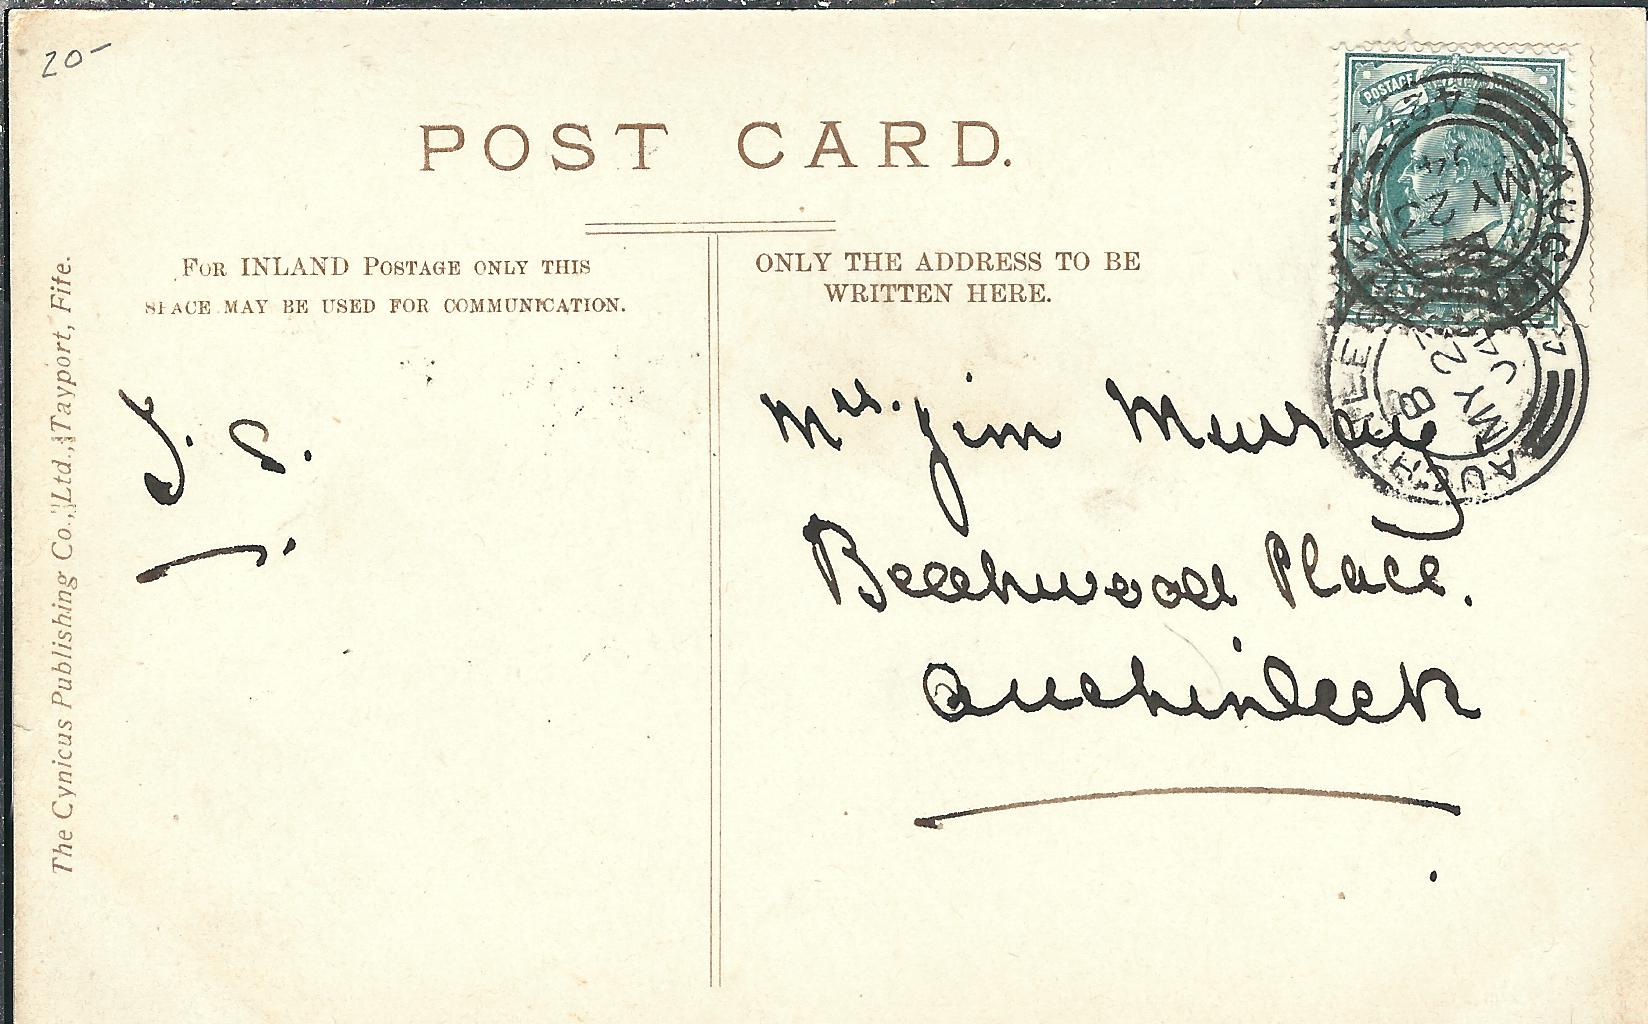 20-
POST CARD.
FOR INLAND POSTAGE ONLY THIS
SPACE MAY BE USED FOR COMMUNICATION.
ONLY THE ADDRESS TO BE
WRITTEN HERE.
The Cynicus Publishing Co., Ltd., Tayport, Fife.
J. S.
Mrs. Jim Murray
Beechwood Place.
Auchinleck
POSTAGE
MY 23
AUCHINLECK
MY 23